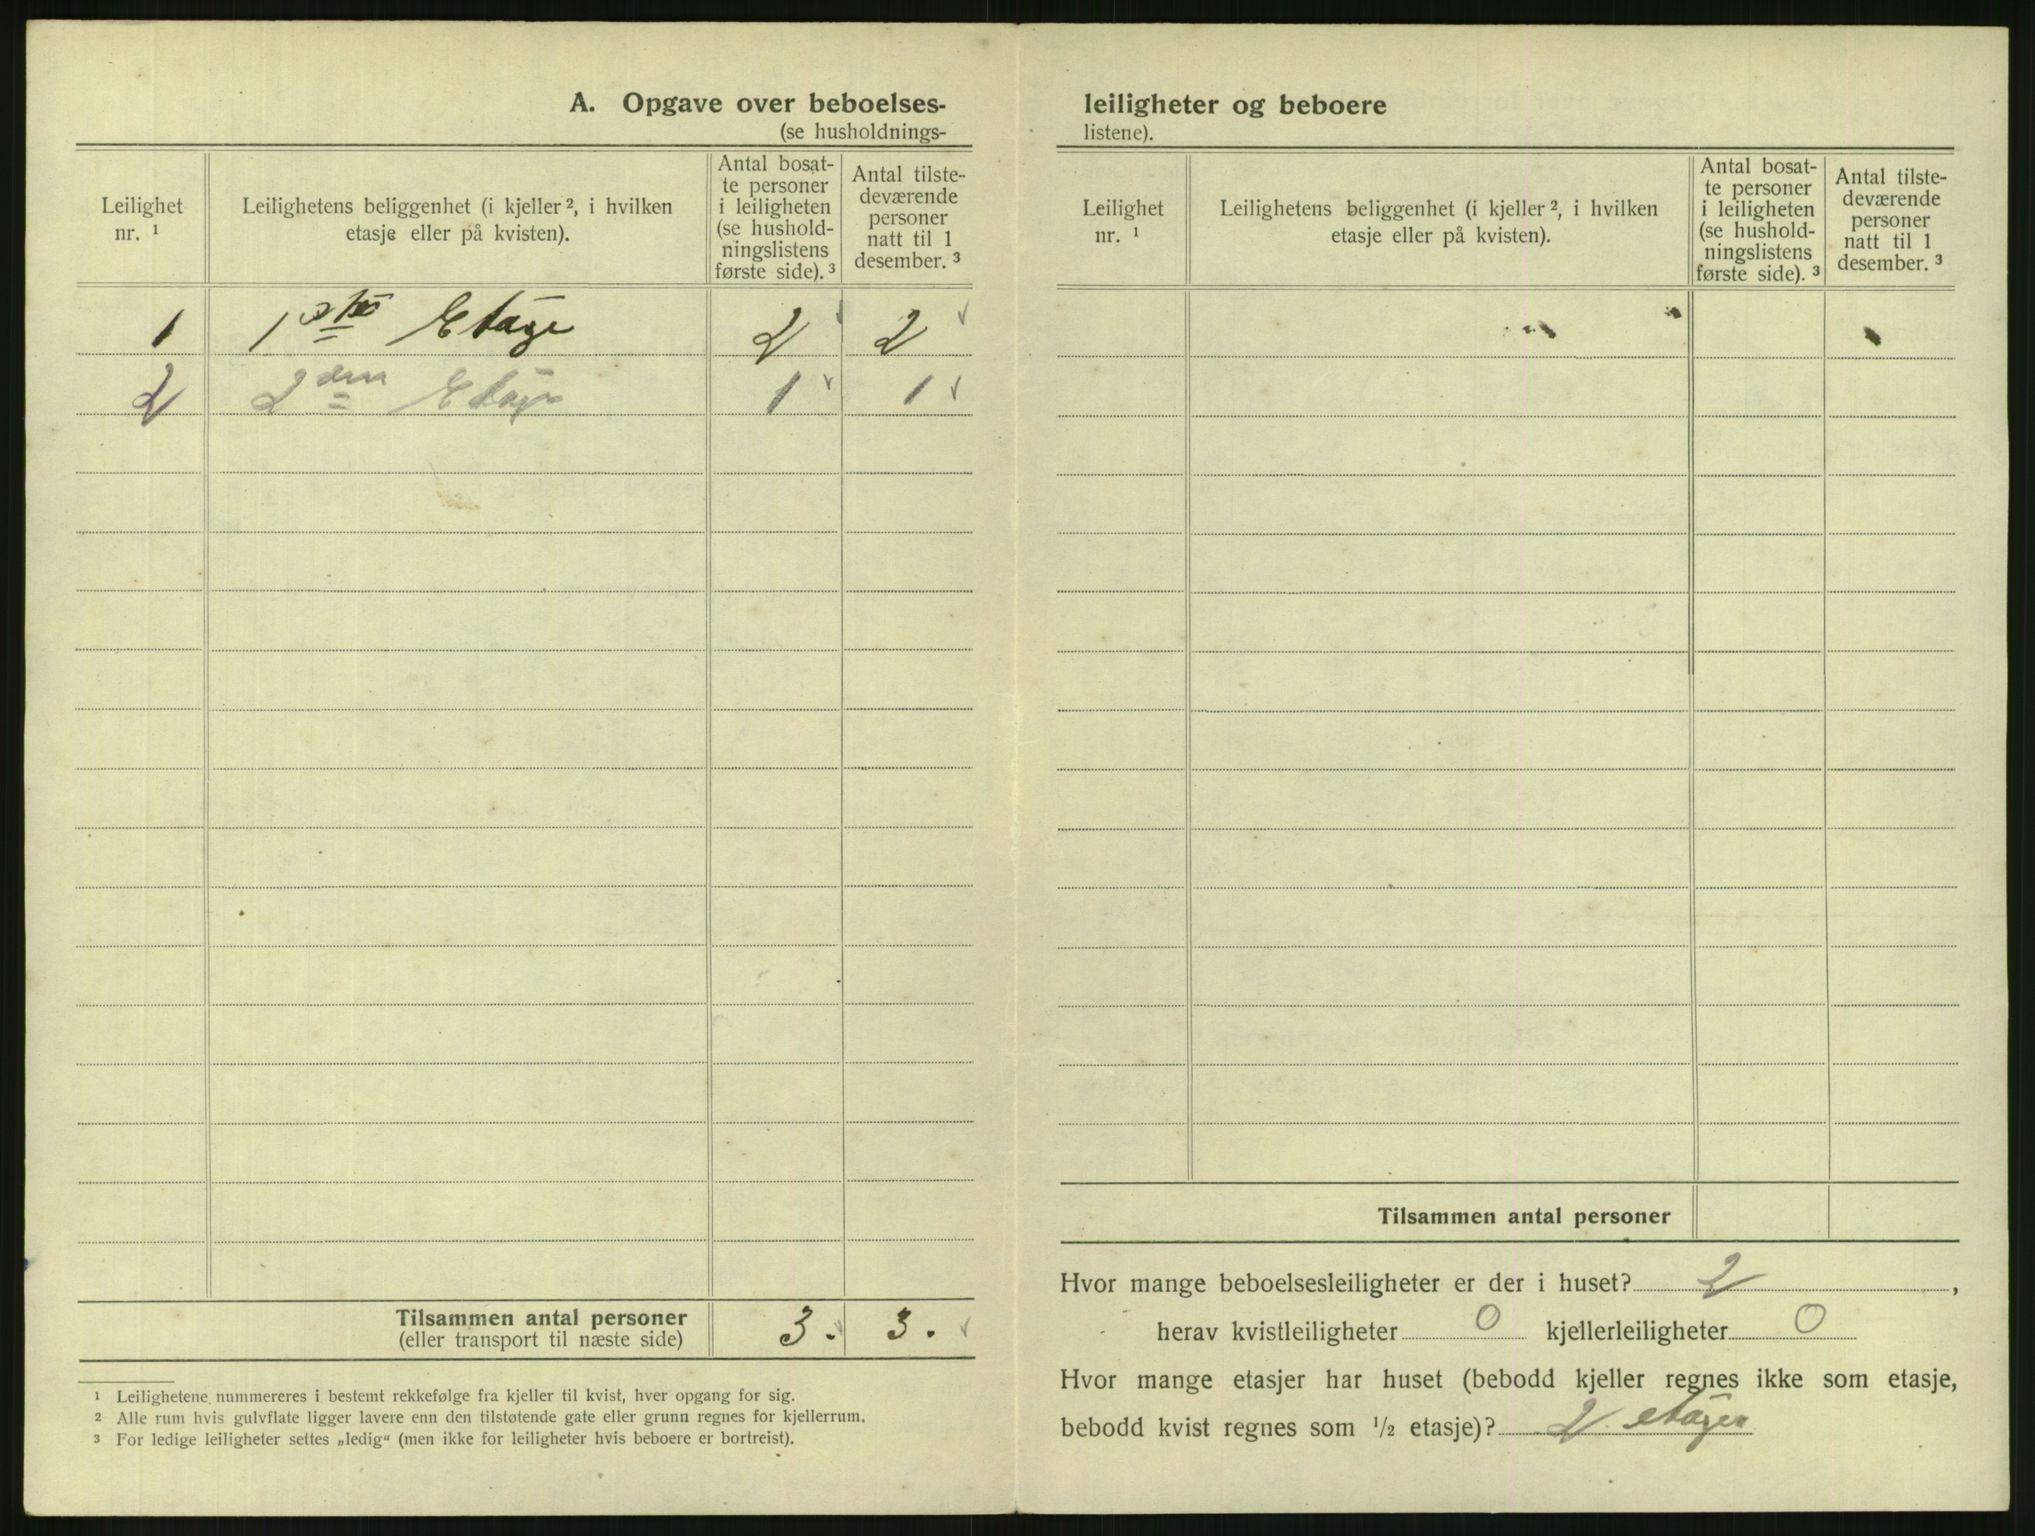 A. Opgave over beboelses-
(se husholdnings-
Leilighet
nr. 1
Leilighetens beliggenhet (i kjeller 2, i hvilken
etasje eller på kvisten).
Antal bosat-
te personer
i leiligheten
(se hushold-
ningslistens
første side). 3
Antal tilste-
deværende
personer
natt til 1
desember. 3
1 1ste Etage 2 2
2 2den Etage 1 1
Tilsammen antal personer
(eller transport til næste side)
3. 3.
1 Leilighetene nummereres i bestemt rekkefølge fra kjeller til kvist, hver opgang for sig.
2 Alle rum hvis gulvflate ligger lavere enn den tilstøtende gate eller grunn regnes for kjellerrum.
3 For ledige leiligheter settes „ledig“ (men ikke for leiligheter hvis beboere er bortreist).
leiligheter og beboere
listene).
Leilighet
nr. 1
Leilighetens beliggenhet (i kjeller 2, i hvilken
etasje eller på kvisten).
Antal bosat-
te personer
i leiligheten
(se hushold-
ningslistens
første side). 3
Antal tilste-
deværende
personer
natt til 1
desember. 3
Tilsammen antal personer
Hvor mange beboelsesleiligheter er der i huset? 2,
herav kvistleiligheter 0 kjellerleiligheter 0
Hvor mange etasjer har huset (bebodd kjeller regnes ikke som etasje,
bebodd kvist regnes som 1/2 etasje)? 2 etager